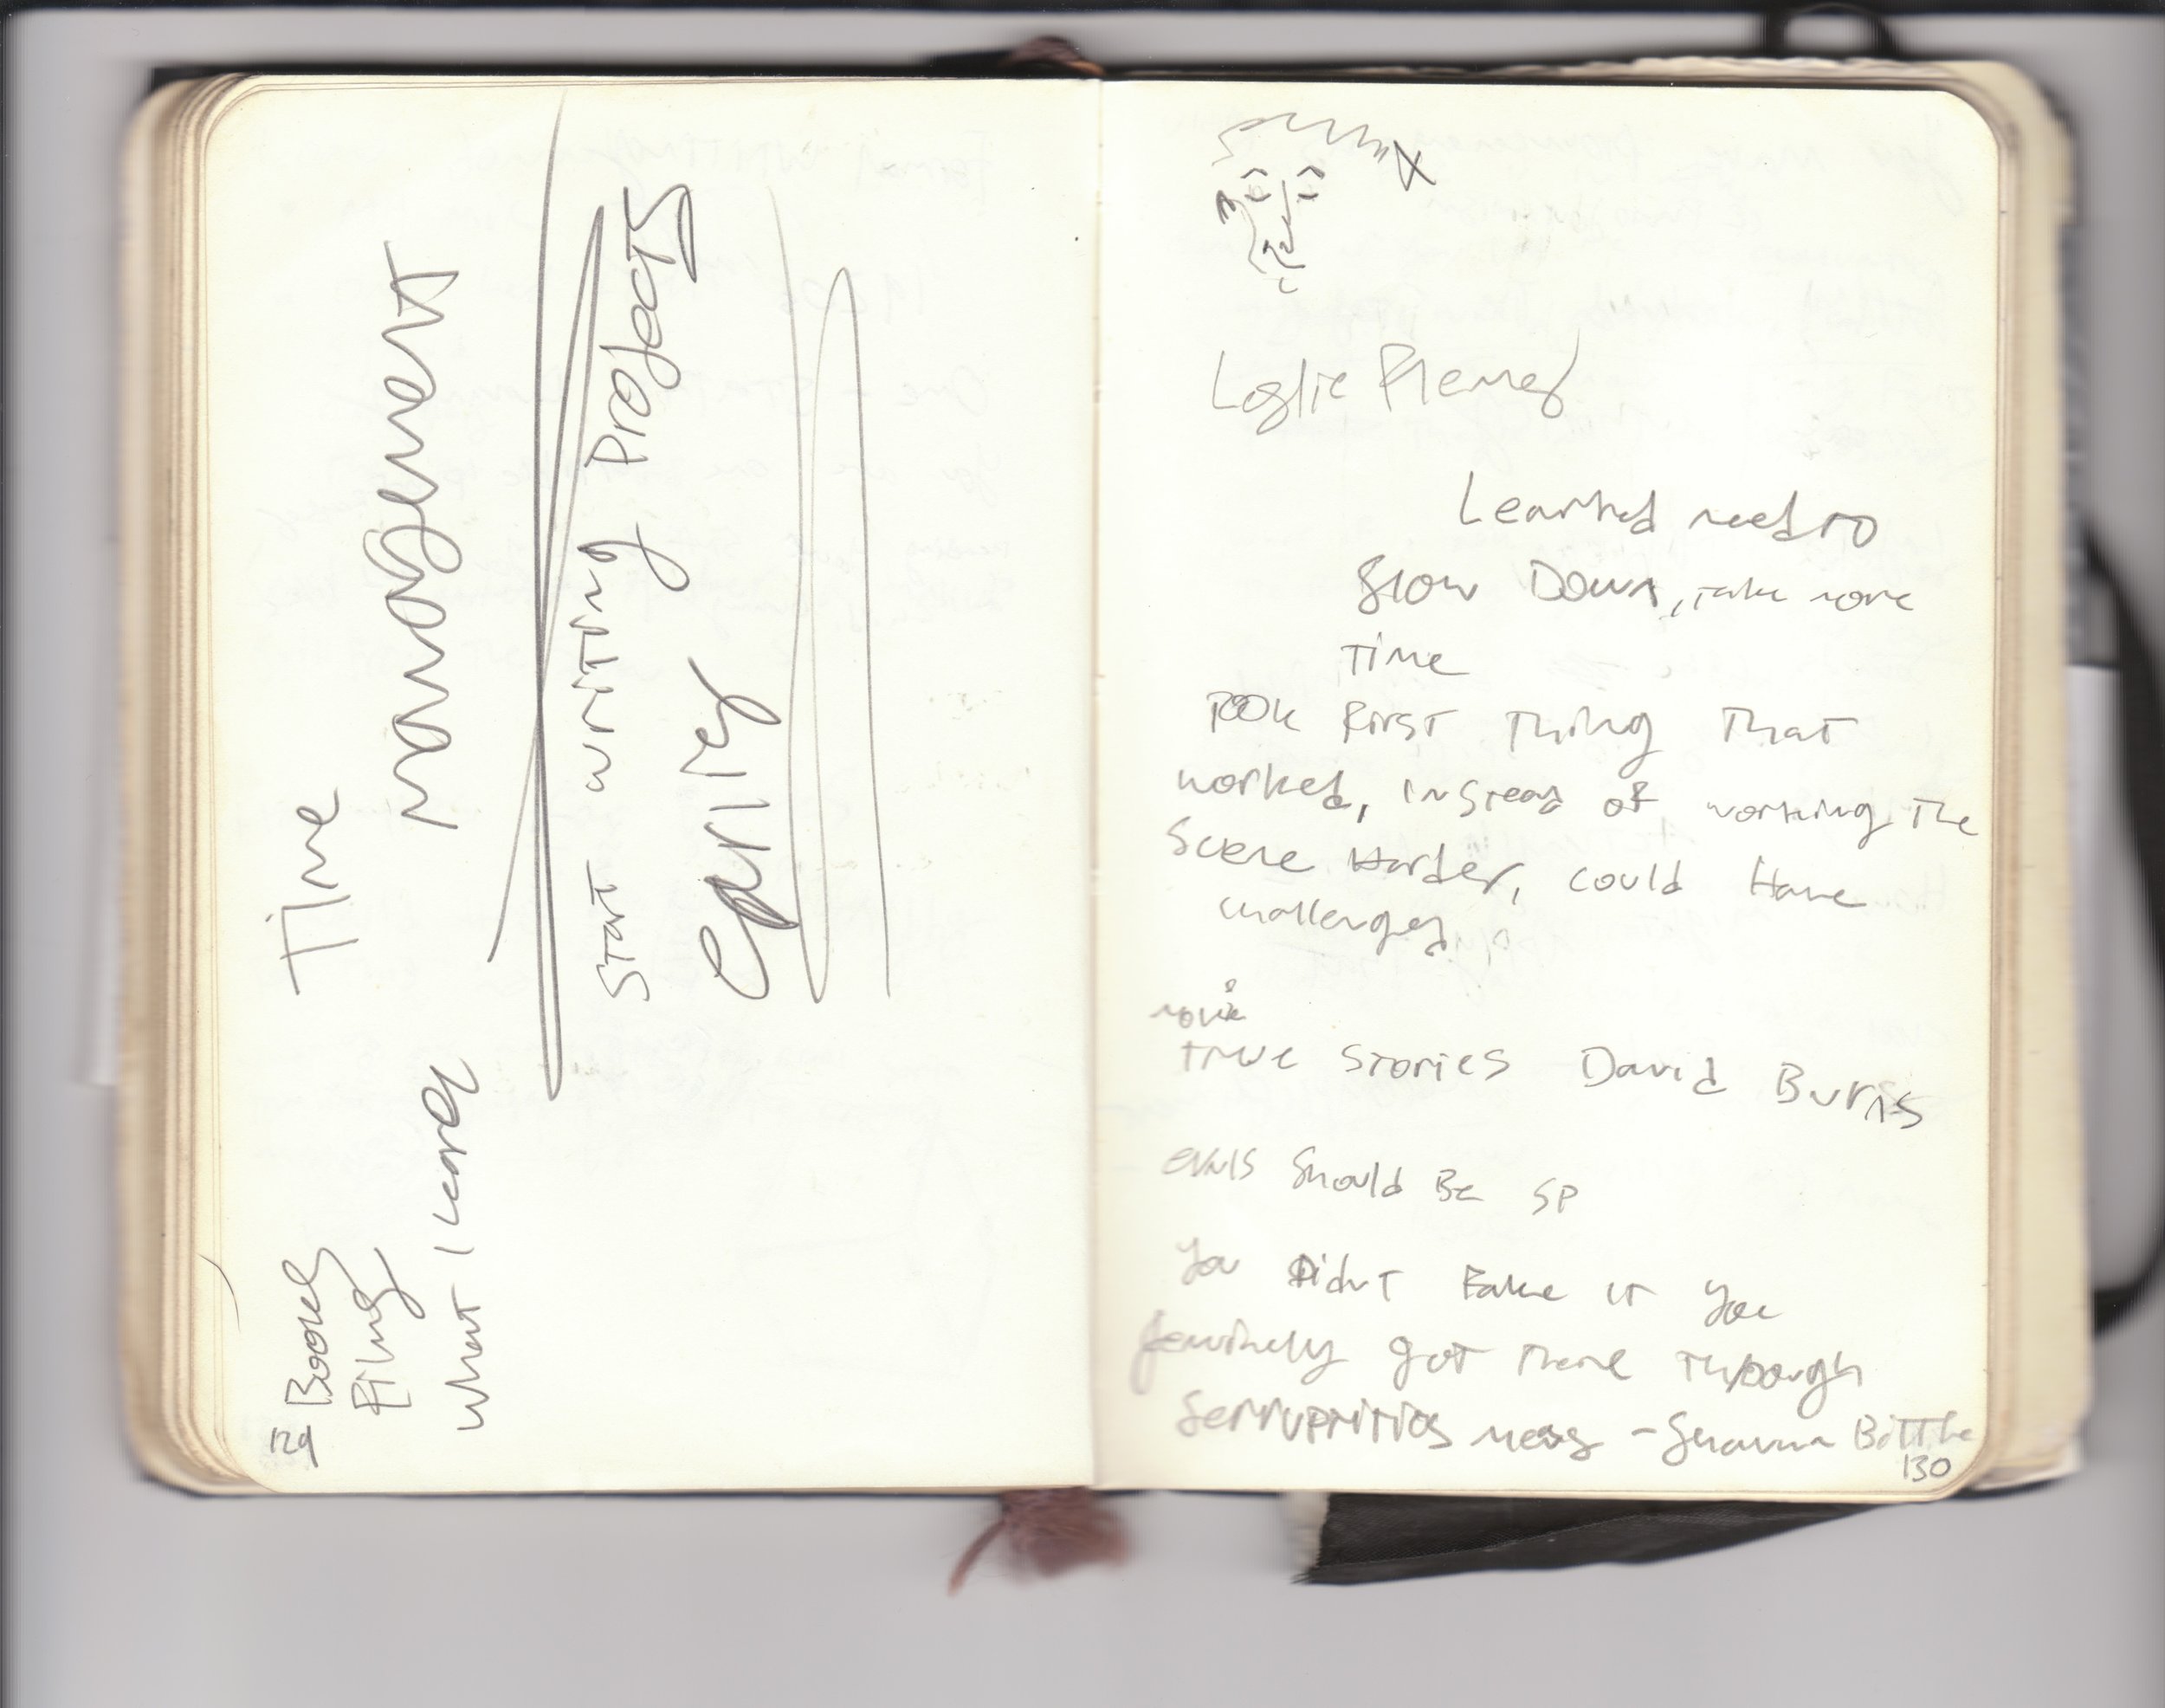 Time
management
Start writing Projects
Early
Books
Filing
What I learn
129
Leslie
Learned need to
Slow Down, take more
Time
Took first thing that
worked, instead of working the
scene Harder, could Have
challenged
movie
True Stories David Burns
evals should be SP
You Didn't Fake it you
genuinely got there through
mess - Shawna Bittle
130